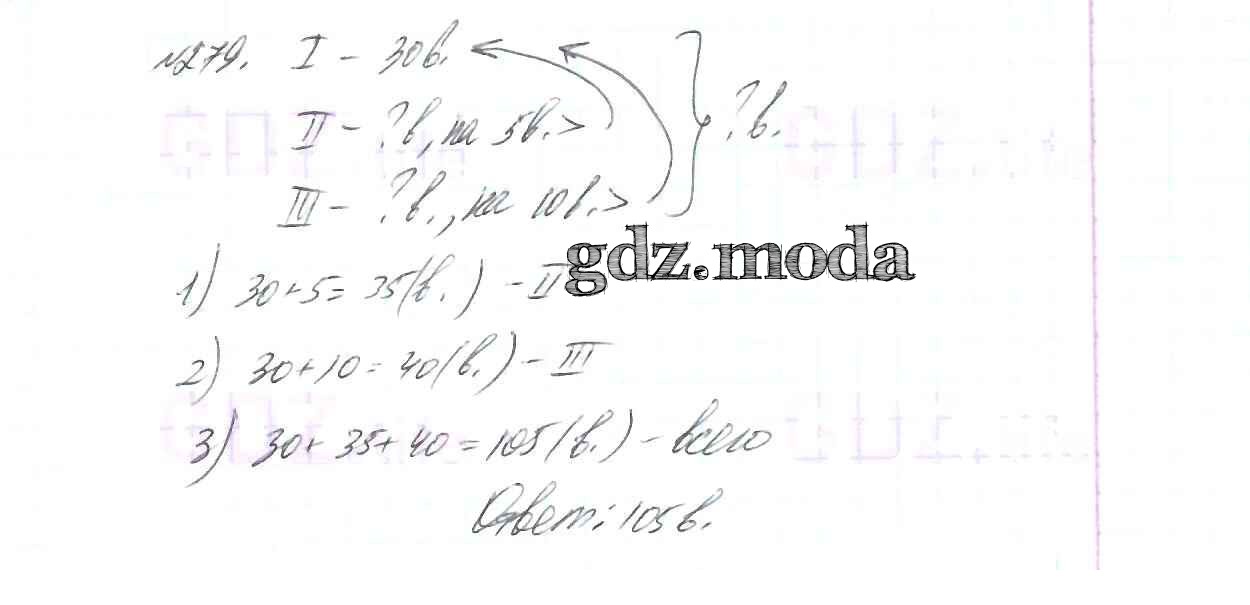 №279. I – 30в.
II – ?в, на 5в. >
III – ?в., на 10в. >
?в.
gdz.moda
1) 30+5= 35(в.) – II
2) 30+10=40(в.) – III
3) 30+35+40=105(в.) – всего
Ответ: 105в.